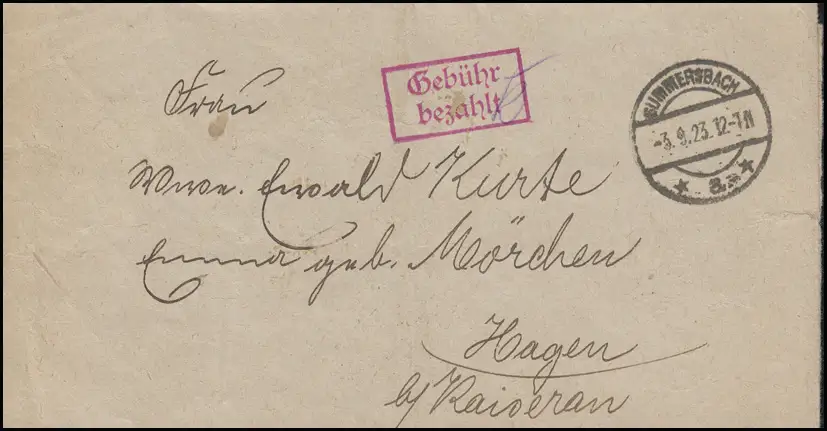 Gebühr
bezahlt
GUMMERSBACH
-3.9.23.12-1N
★ a. ★
Frau
Wwe. Ewald Kurte
Emma geb. Mörchen
Hagen
b/ Kaiserau